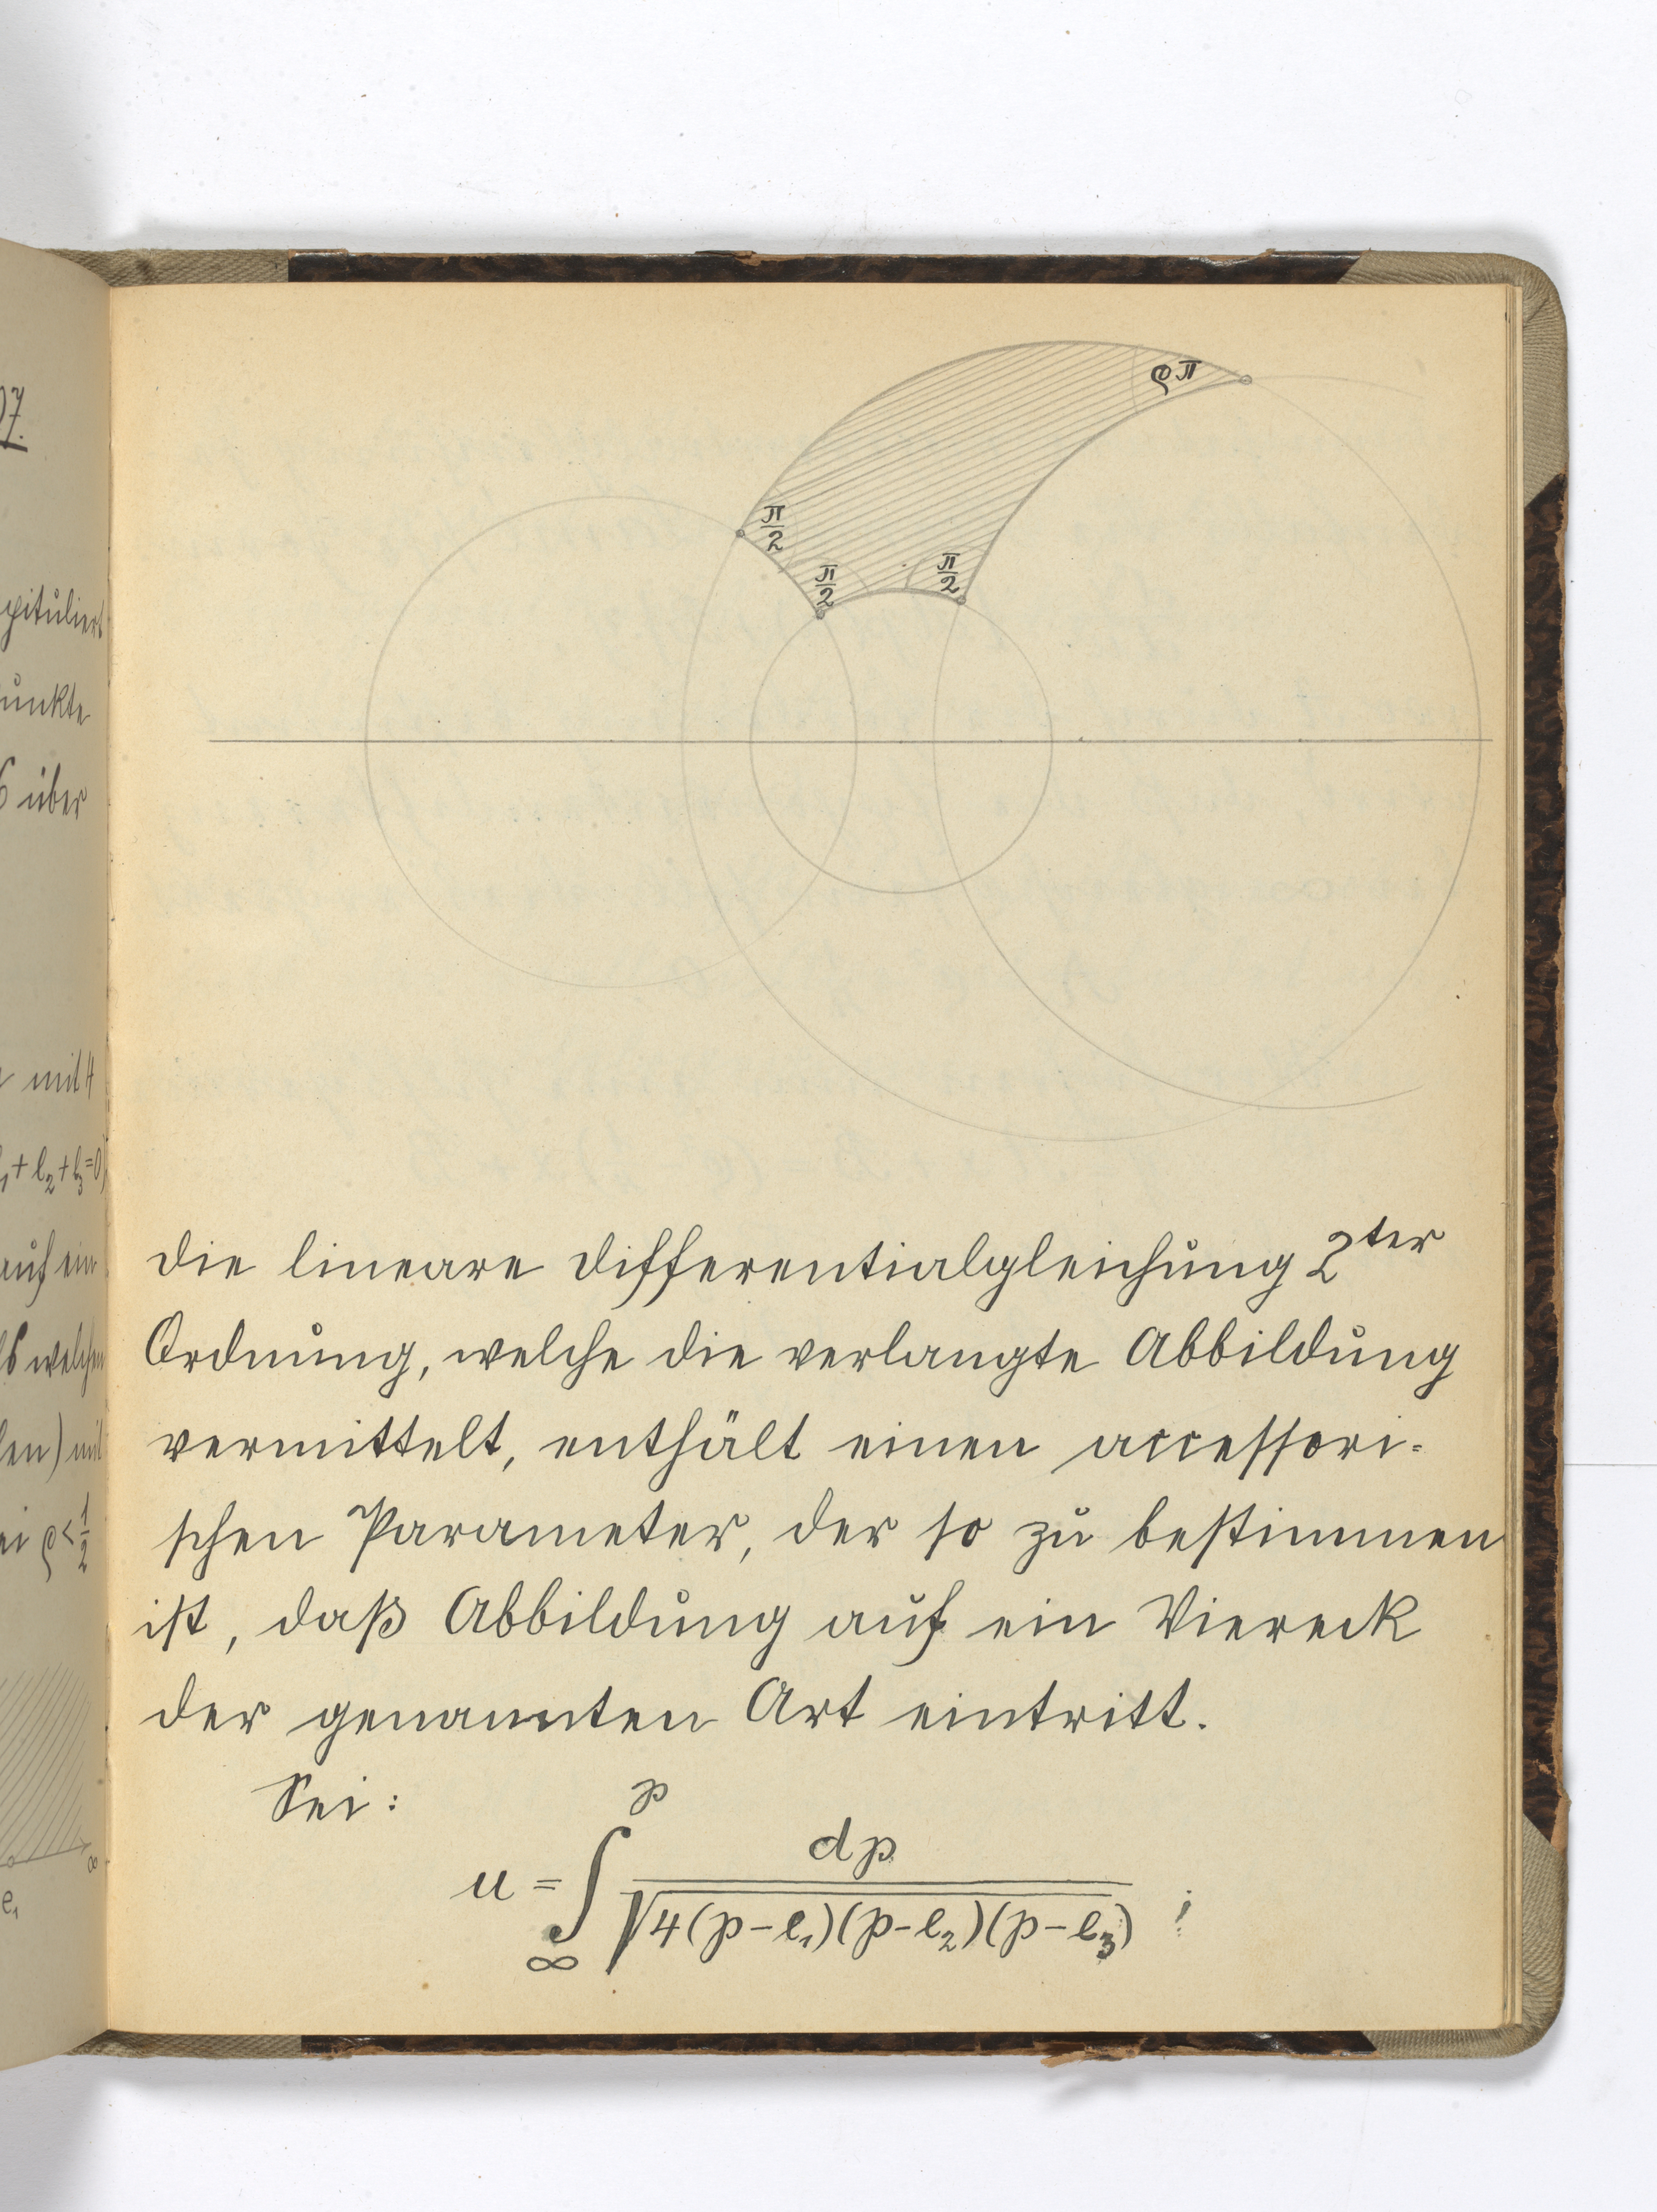 07.
pituliert
unkte
6 über
mit 4
e₁+e₂+e₃=0)
auf ein
welchem
len) mit
ei ρ<1/2
∞
e₁
ρπ
π/2
π/2
π/2
die lineare Differentialgleichung 2ter
Ordnung, welche die verlangte Abbildung
vermittelt, enthält einen accessori-
schen Parameter, der so zu bestimmen
ist, daß Abbildung auf ein Viereck
der genannten Art eintritt.
Sei:
u = ∫_∞^℘ d℘ / √4(℘-e₁)(℘-e₂)(℘-e₃) ;